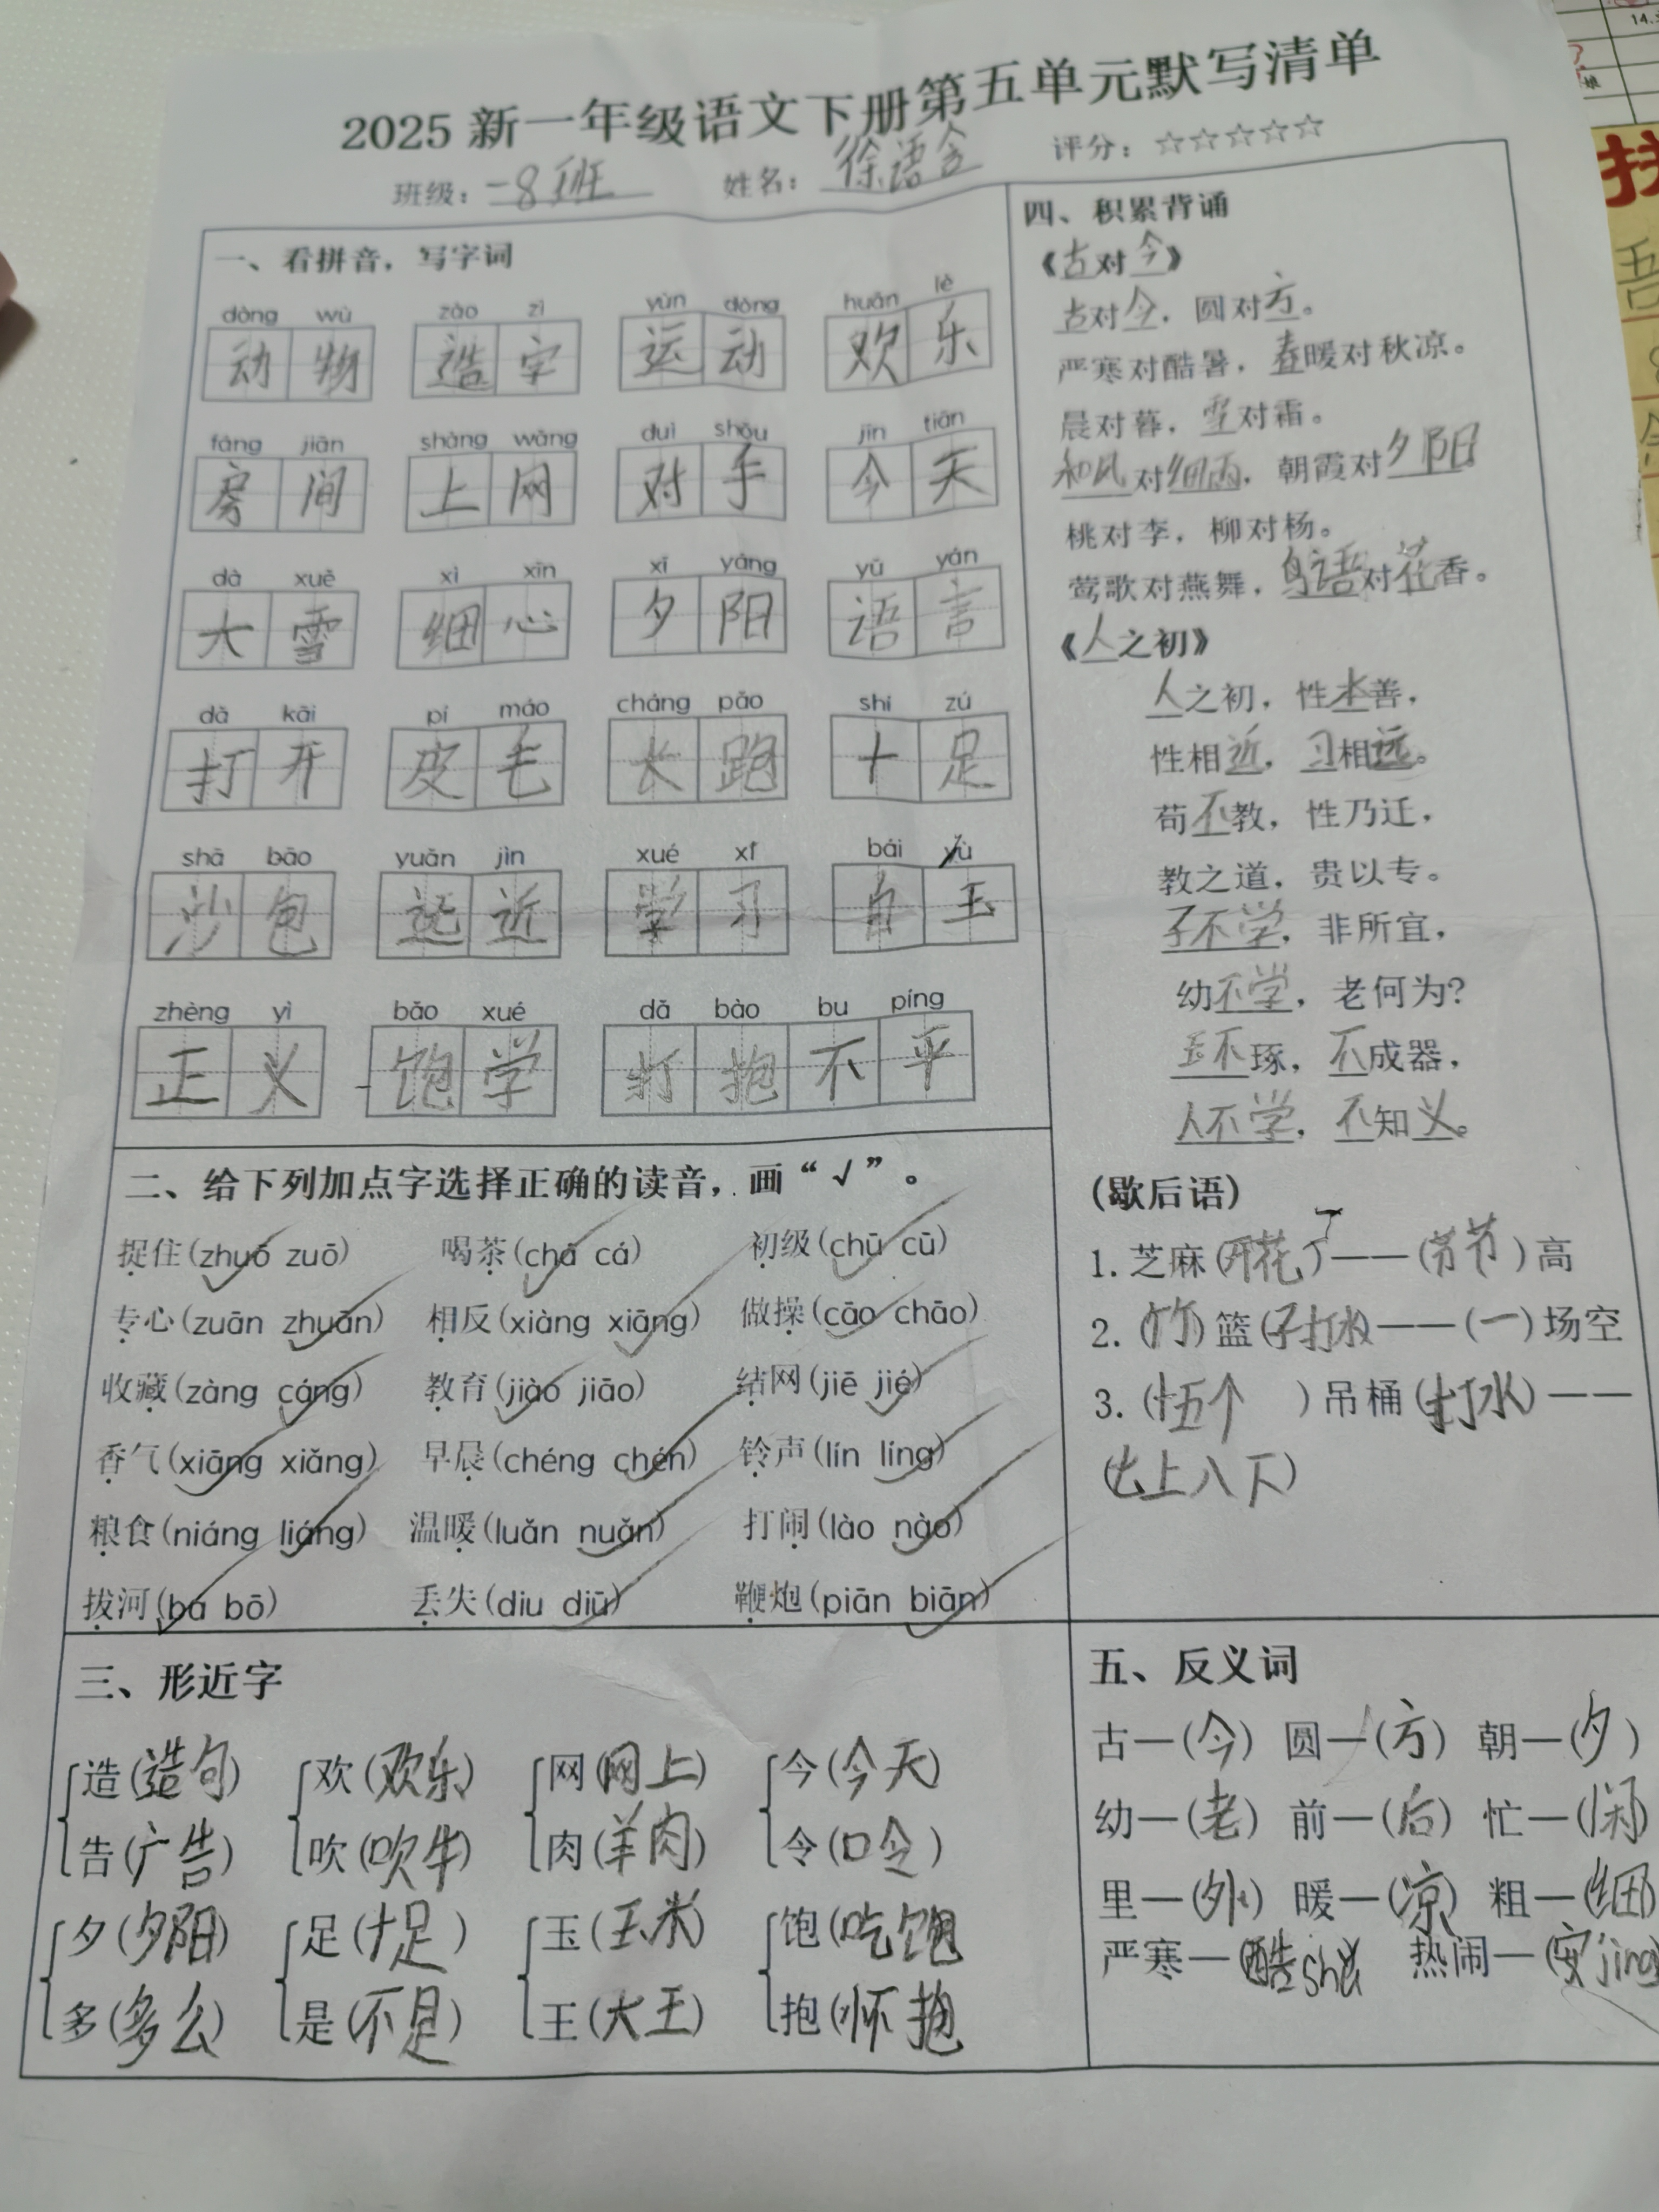 2025新一年级语文下册第五单元默写清单
班级：一8班 姓名：徐语含 评分：☆☆☆☆☆
一、看拼音，写字词
dòng wù zào zì yùn dòng huān lè
动物 造字 运动 欢乐
fáng jiān shàng wǎng duì shǒu jīn tiān
房间 上网 对手 今天
dà xuě xì xīn xī yáng yǔ yán
大雪 细心 夕阳 语言
dǎ kāi pí máo cháng pǎo shí zú
打开 皮毛 长跑 十足
shā bāo yuǎn jìn xué xí bái yù
沙包 远近 学习 白玉
zhèng yì bǎo xué dǎ bào bu píng
正义 饱学 打抱不平
二、给下列加点字选择正确的读音，画“√”。
捉住(zhuō zuō) 喝茶(chá cá) 初级(chū cū)
专心(zuān zhuān) 相反(xiàng xiāng) 做操(cāo chāo)
收藏(zàng cáng) 教育(jiào jiāo) 结网(jiē jié)
香气(xiāng xiǎng) 早晨(chéng chén) 铃声(lín líng)
粮食(niáng liáng) 温暖(luǎn nuǎn) 打闹(lào nào)
拔河(bá bō) 丢失(diu diū) 鞭炮(piān biān)
三、形近字
造(造句) 欢(欢乐) 网(网上) 今(今天)
告(广告) 吹(吹牛) 肉(羊肉) 令(口令)
夕(夕阳) 足(十足) 玉(玉米) 饱(吃饱
多(多么) 是(不是) 王(大王) 抱(怀抱
四、积累背诵
《古对今》
古对今，圆对方。
严寒对酷暑，春暖对秋凉。
晨对暮，雪对霜。
和风对细雨，朝霞对夕阳
桃对李，柳对杨。
莺歌对燕舞，鸟语对花香。
《人之初》
人之初，性本善，
性相近，习相远。
苟不教，性乃迁，
教之道，贵以专。
子不学，非所宜，
幼不学，老何为?
玉不琢，不成器，
人不学，不知义。
(歇后语)
1.芝麻(开花)——(节节)高
2.(竹)篮(子打水)——(一)场空
3.(十五个)吊桶(打水)——
(七上八下)
五、反义词
古—(今) 圆—(方) 朝—(夕)
幼—(老) 前—(后) 忙—(闲)
里—(外) 暖—(凉) 粗—(细)
严寒—(酷shǔ 热闹—(安jìng